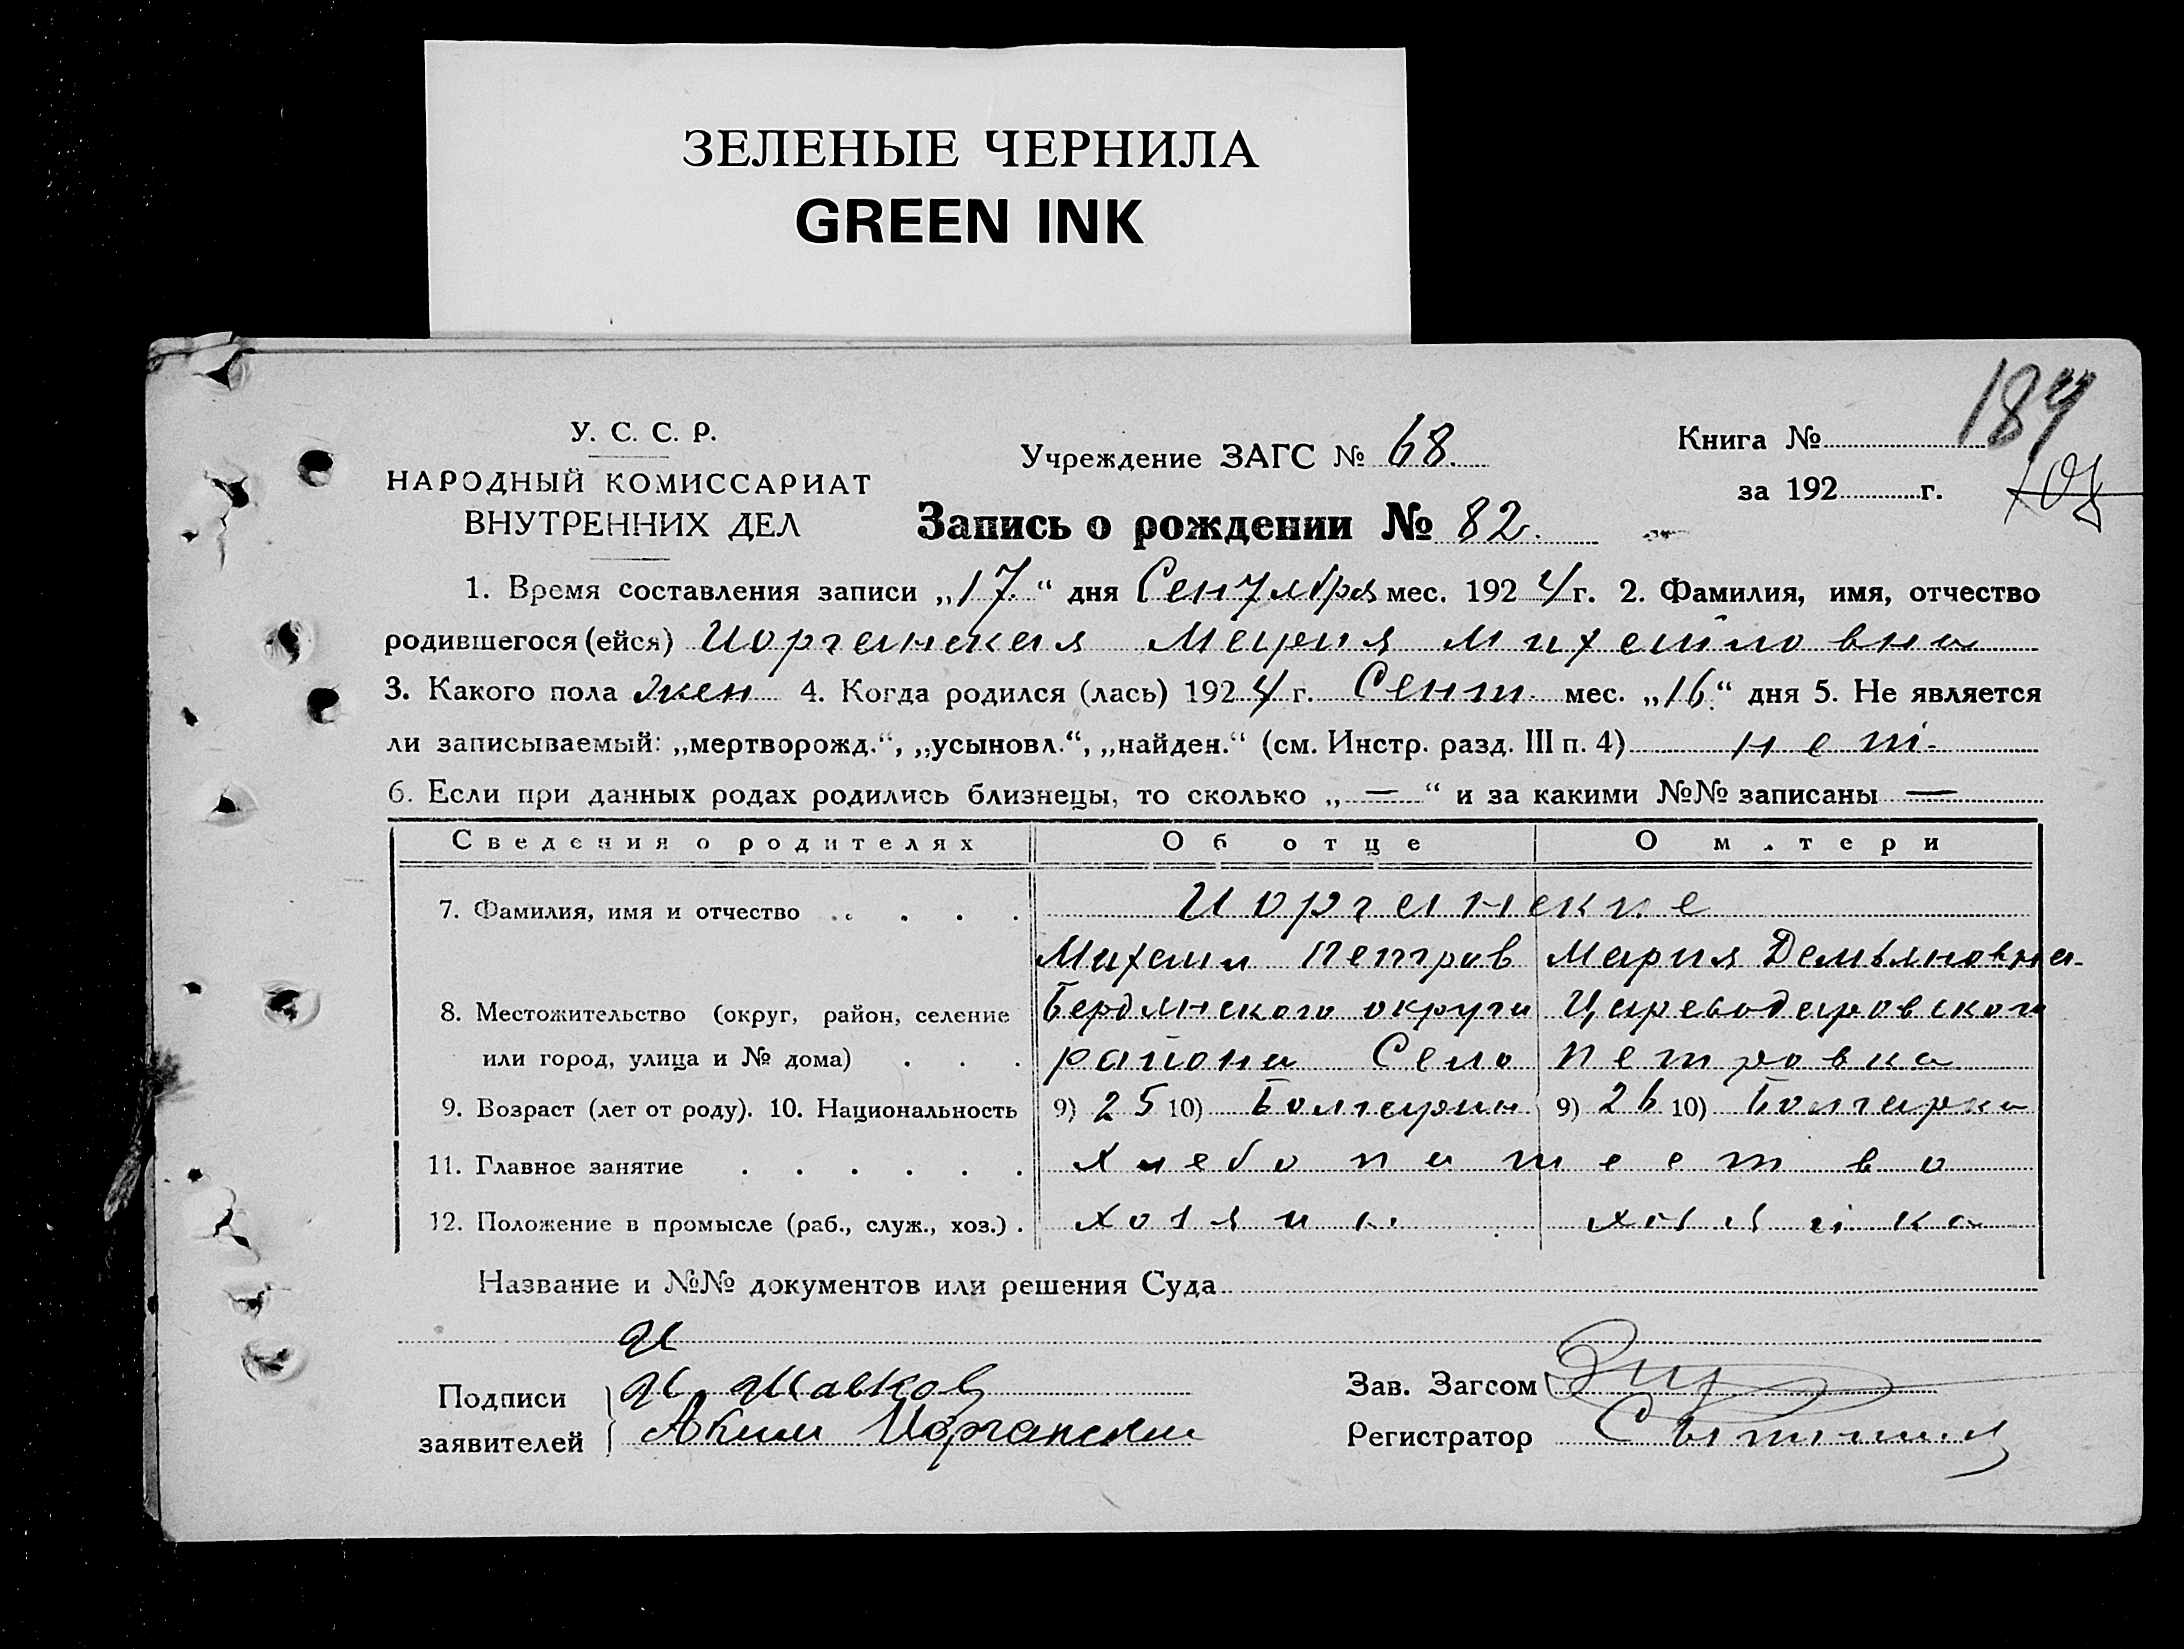 ЗЕЛЕНЫЕ ЧЕРНИЛА
GREEN INK
У. С. С. Р.
НАРОДНЫЙ КОМИССАРИАТ
ВНУТРЕННИХ ДЕЛ
Учреждение ЗАГС № 68.
Книга №
184
за 192 г.
Запись о рождении № 82.
1. Время составления записи „17.“ дня Сентября мес. 1924 г. 2. Фамилия, имя, отчество
родившегося (ейся) Иорганская Мария Михайловна
3. Какого пола жен 4. Когда родился (лась) 1924 г. Сент. мес. „16.“ дня 5. Не является
ли записываемый: „мертворожд.“, „усыновл.“, „найден.“ (см. Инстр. разд. III п. 4) нет.
6. Если при данных родах родились близнецы, то сколько „—“ и за какими №№ записаны —
Сведения о родителях Об отце О матери
7. Фамилия, имя и отчество Иорганские
Михаил Петров Мария Демьяновна
8. Местожительство (округ, район, селение Бердянского округа Цареводаровского
или город, улица и № дома) района Село Петровка
9. Возраст (лет от роду). 10. Национальность 9) 25 10) Болгарин 9) 26 10) Болгарка
11. Главное занятие Хлебопашество
12. Положение в промысле (раб., служ., хоз.) хозяин. хозяйка
Название и №№ документов или решения Суда
Подписи
заявителей Аким Иорганский
Зав. Загсом
Регистратор